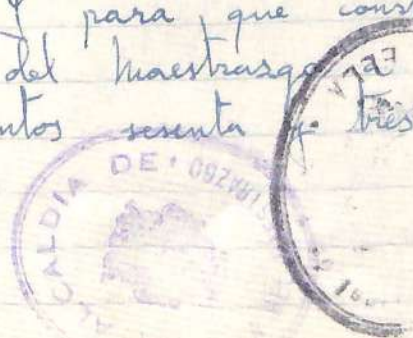 Y para que cons
del Maestrasgo a
ntos sesenta y tres
ALCALDIA DE